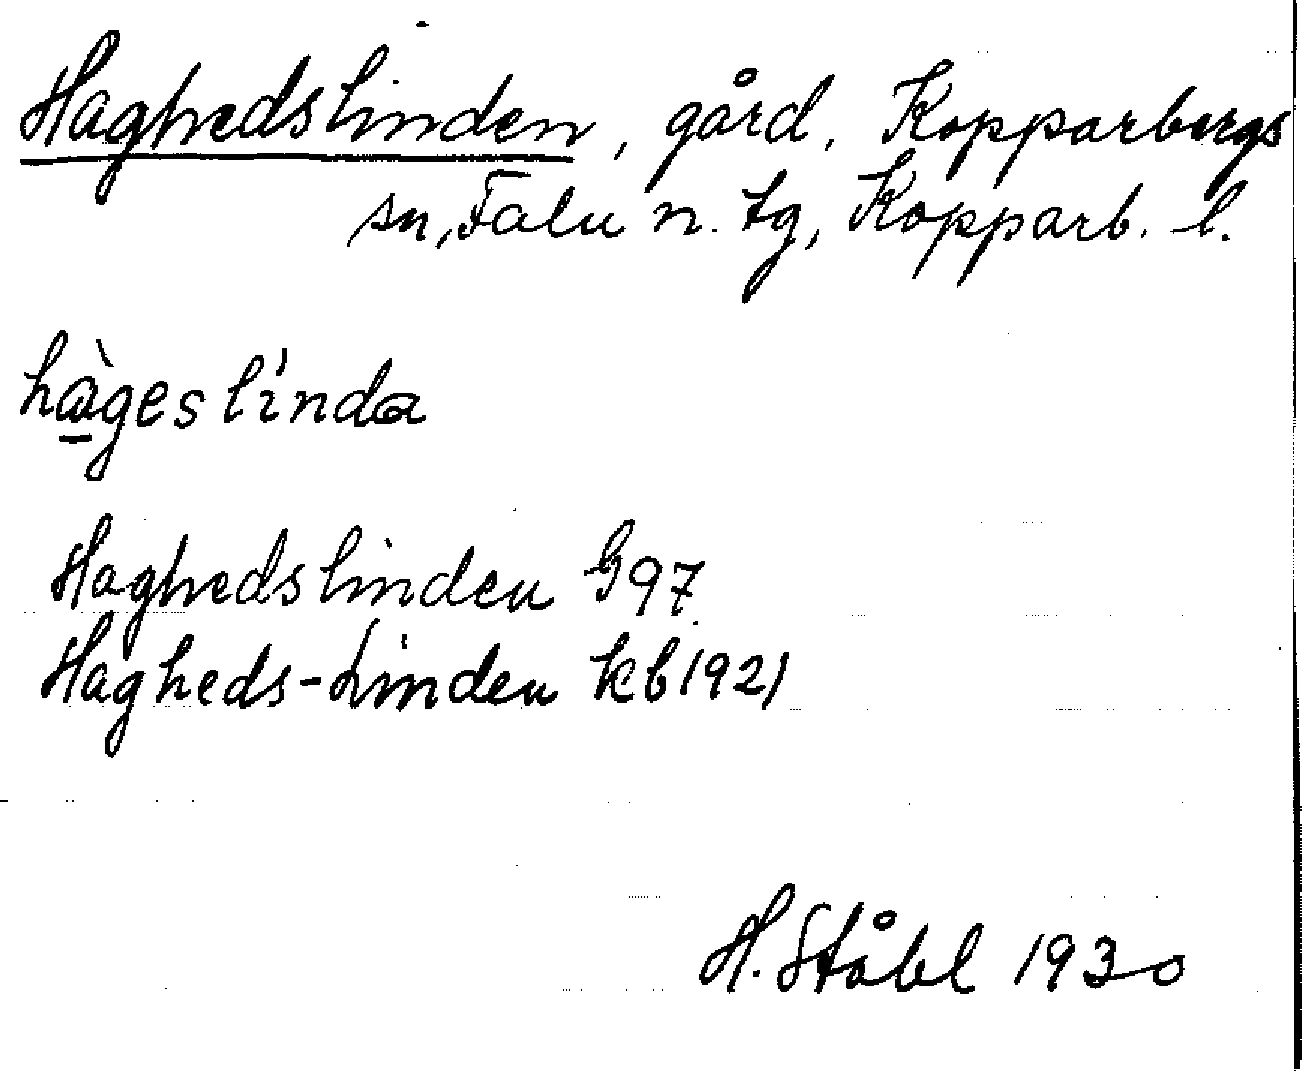 Haghedslinden, gård, Kopparbergs
sn, Falu n. tg, Kopparb. l.
hàgeslinda
Haghedslinden G97
Hagheds-Linden kb 1921
H. Ståhl 1930